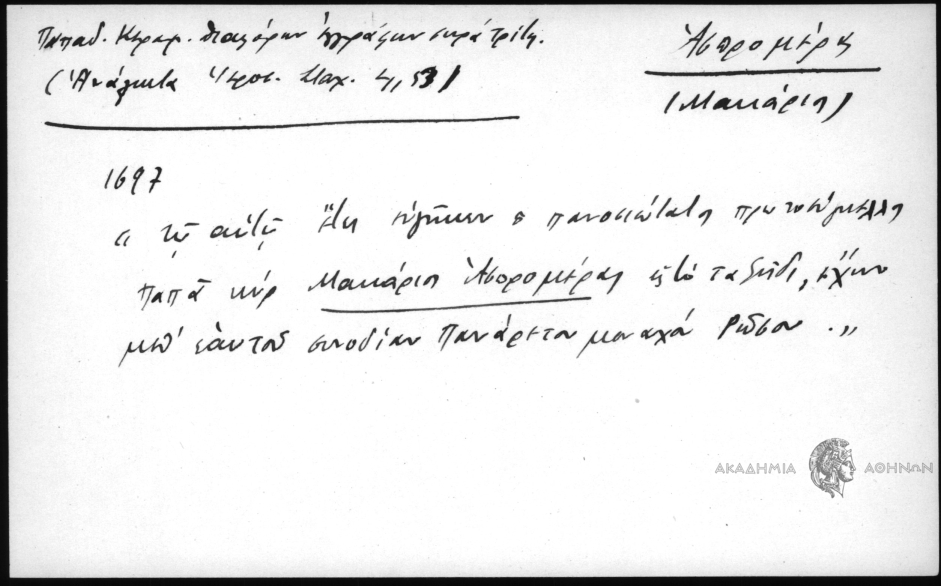 Παπαδ. Κεραμ. διαφόρων ἐγγράφων σειρὰ τρίτη.
(Ἀνάλεκτα Ἱεροσ. Σταχ. 4, 53)
Ἀσπρομέρης
(Μακάριος)
1697
" τῷ αὐτῷ ἔτει ὁ πανοσιώτατος πρωτοσύγκελλος
παπᾶ κὺρ Μακάριος Ἀσπρομέρης εἰς τὸ ταξεῖδι, ἔχων
μεθ' ἑαυτοῦ συνοδίαν Πανάρετον μοναχὸ Ρῶσον. "
ΑΚΑΔΗΜΙΑ ΑΘΗΝΩΝ